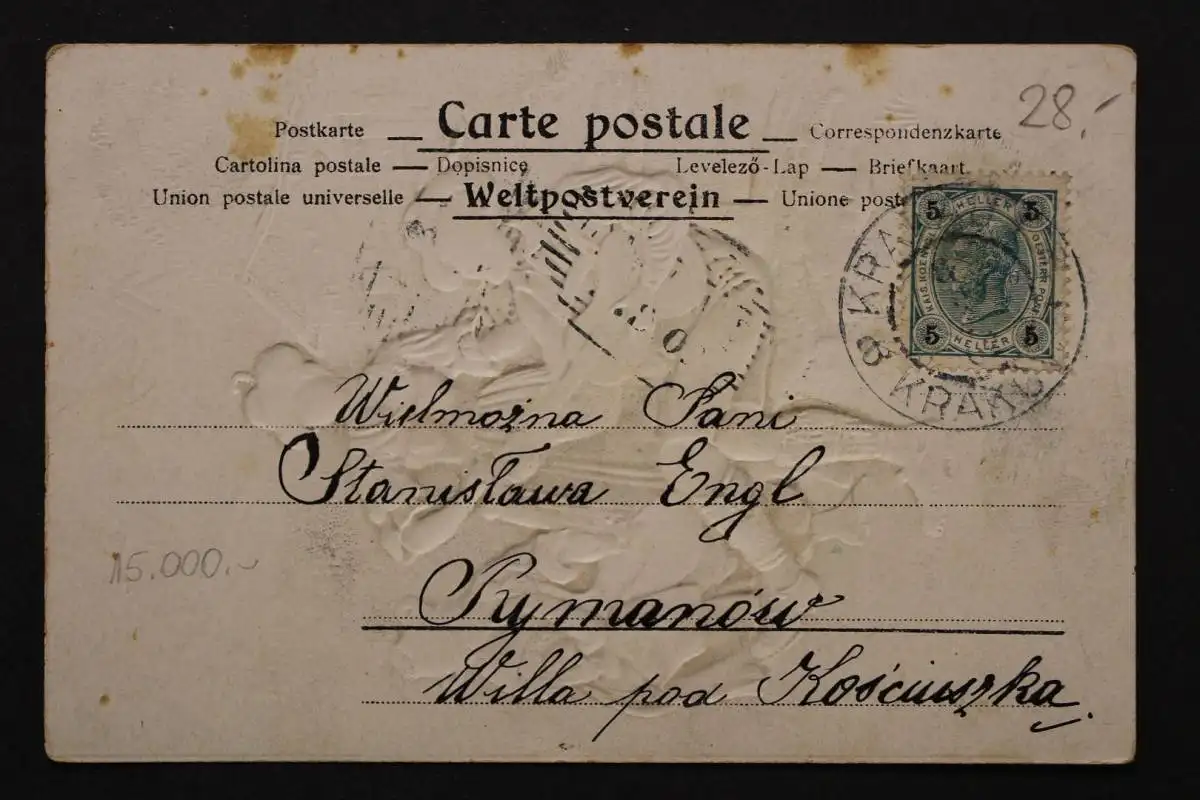 28.-
Carte postale
Postkarte — Correspondenzkarte
Cartolina postale — Dopisnice Levelező-Lap — Briefkaart
Union postale universelle — Weltpostverein — Unione post
5 HELLER 5
KAIS. KOENIGL. OESTERR. POST
5 HELLER 5
8 KRAK
Wielmożna Pani
Stanisława Engl
15.000.-
Rymanów
Willa pod Kościuszką.